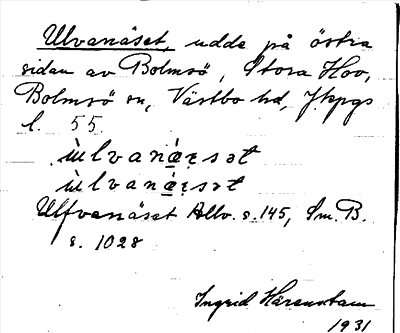 Ulvanäset, udde på östra
sidan av Bolmsö, Stora Hov,
Bolmsö sn, Västbo hd, Jkpgs
l. 55.
ùlvanǽ̣ꞅsət
ùlvanǽ̣ꞅsət
Ulfvanäset Allv. s. 145, Sm. B.
s. 1028
Ingrid Härenstam
1931